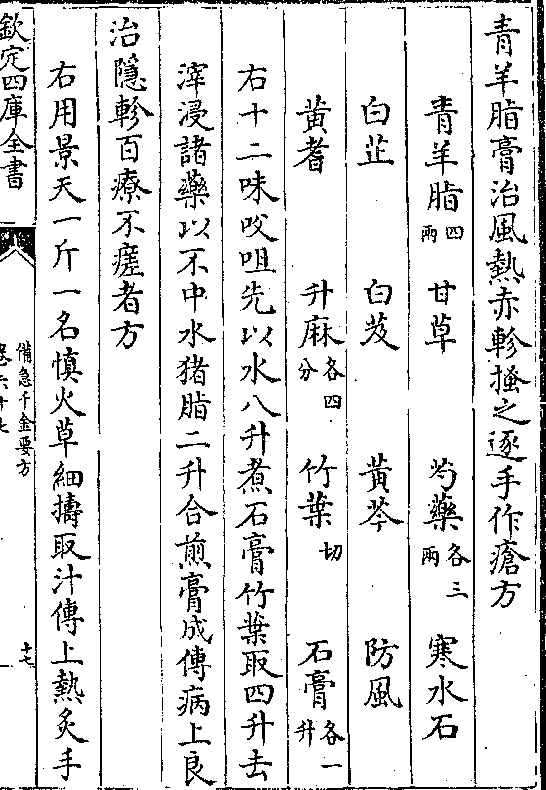 青羊脂膏治風熱赤軫搔之逐手作瘡方
青羊脂四兩 甘草 芍藥各三兩 寒水石
白芷 白芨 黃芩 防風
黃耆 升麻各四分 竹葉切 石膏各一升
右十二味㕮咀先以水八升煮石膏竹葉取四升去
滓浸諸藥以不中水猪脂二升合煎膏成傅病上良
治隱軫百療不瘥者方
右用景天一斤一名慎火草細擣取汁傅上熱炙手
欽定四庫全書
備急千金要方
十七